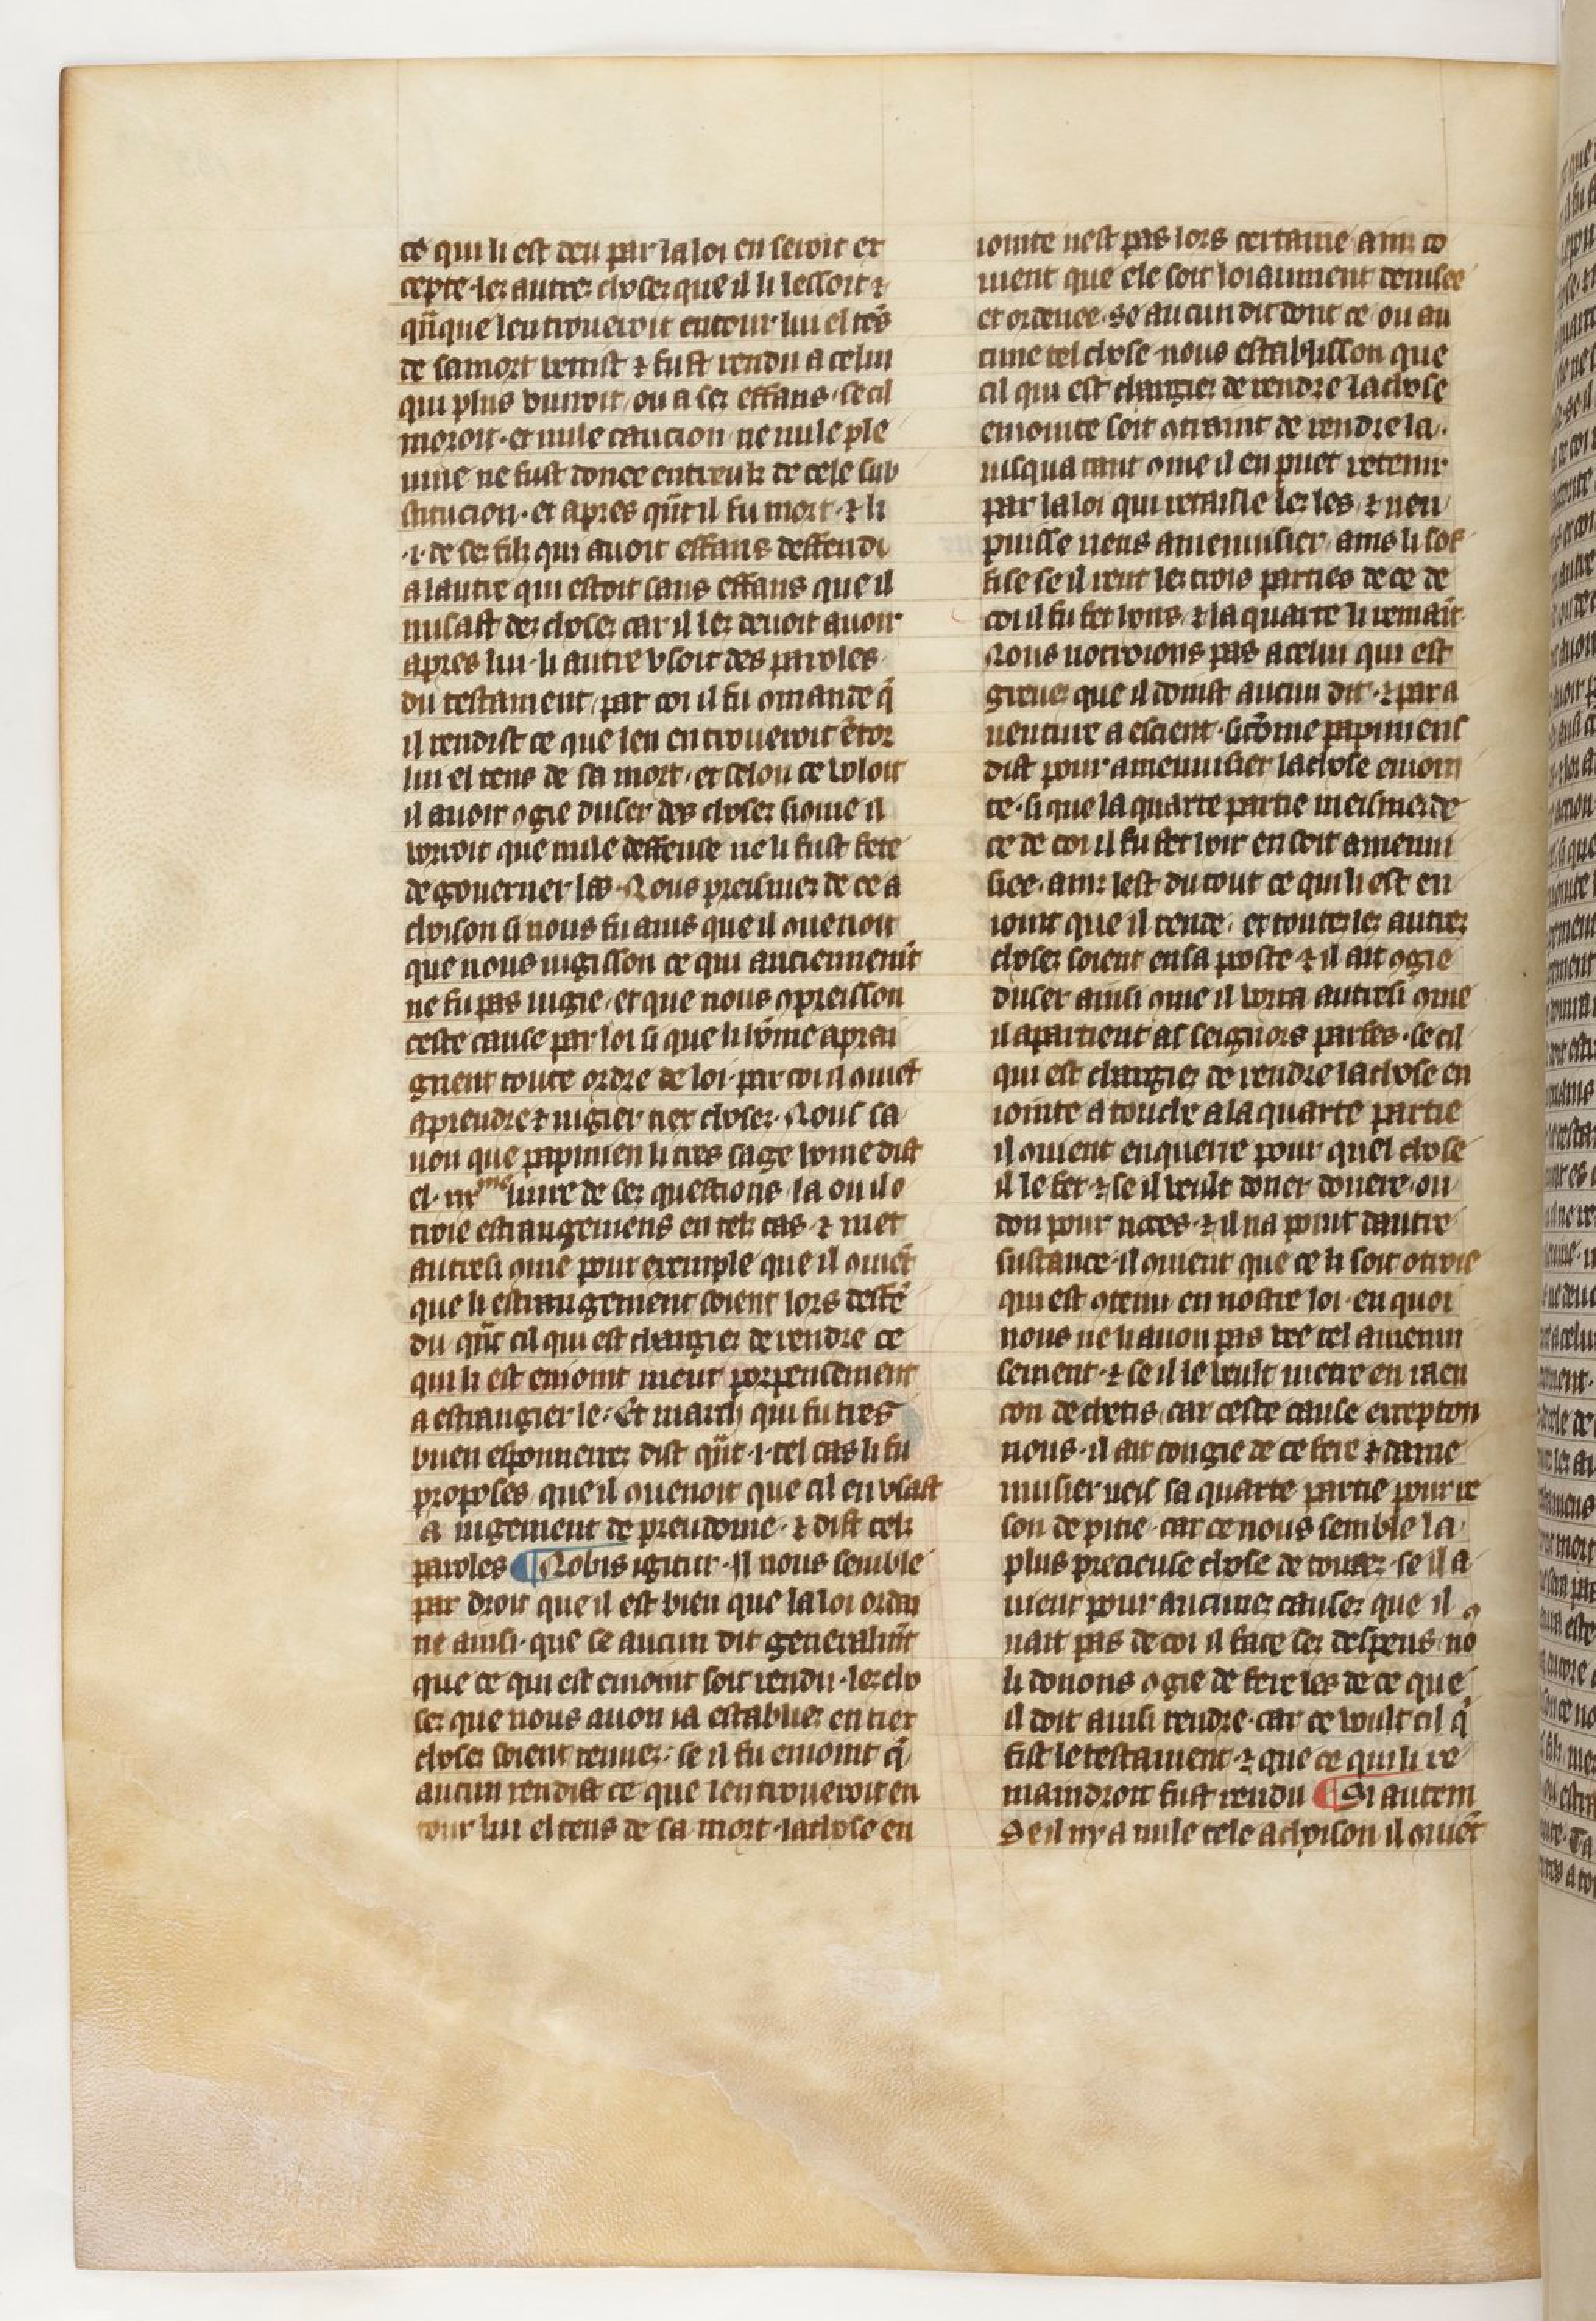 ce qui li est deu par la loi en seroit ex
cepte · les autres choses que il li lessoit ⁊
qñque len trouueroit entour lui el tẽs
de sa mort venist ⁊ fust rendu a celui
qui plus viuroit / ou a ses effans · se cil
moroit · et nule caucion ne nule ple
uine ne fust donee entreulz de cele sub
stitucion · et apres qñt il fu mort · ⁊ li
·i· de ses filz qui auoit effans deffendi
a lautre qui estoit sans effans que il
nusast des choses car il les deuoit auoir
apres lui · li autre vsoit des paroles
du testament / par coi il fu ꝯmande q̃
il rendist ce que len en trouueroit ẽtor
lui el tens de sa mort / et selon ce voloit
il auoir ꝯgie duser des choses si ꝯme il
vorroit que nule deffense ne li fust fete
de gouerner les · Nous preismes de ce a
choison si nous fu auis que il ꝯuenoit
que nous iugisson ce qui anciennemñt
ne fu pas iugie / et que nous ꝯpreisson
ceste cause par loi si que li hõme aprai
gnent toute ordre de loi · par coi il ꝯuiẽt
aprendre ⁊ iugier tiex choses · Nous sa
uon que papinien li tres sage home dist
el · xixme liure de ses questions / la ou il o
troie estrangemens en telz cas · ⁊ met
autresi ꝯme pour exemple que il ꝯuiẽt
que li estrangement soient lors deffẽ
du qñt cil qui est chargiez de rendre ce
qui li est enioint meut porpensement
a estrangier le · Et march qui fu tres
buen esponnerres dist qñt ·i· tel cas li fu
proposes que il ꝯuenoit que cil en vsast
a iugement de preudome · ⁊ dist telz
paroles ¶ Nobis igitur · Il nous semble
par droit que il est bien que la loi ordai
ne ainsi · que se aucun dit generalmñt
que ce qui est enioint soit rendu · les cho
ses que nous auon ia establies en tiex
choses soient tenues · se il fu enioint q̃
aucun rendist ce que len trouueroit en
tour lui el tens de sa mort · la chose en
iointe nest pas lors certaine ainz co
uient que ele soit loiaument deuisee
et ordenee · Se aucun dit dont ce / ou au
cune tel chose · nous establisson que
cil qui est chargiez de rendre la chose
eniointe soit ꝯtraint de rendre la ·
iusqua tant ꝯme il en puet retenir
par la loi qui retaille les les / ⁊ nen
puisse riens amenuisier / ains li sof
fise se il rent les trois parties de ce de
coi il fu fet hoirs · ⁊ la quarte li remaĩt ·
Nous notroions pas a celui qui est
greuez que il doinst aucun dit · ⁊ par a
uenture a escient · si cõme papiniens
dist pour amenuisier la chose enioin
te · si que la quarte partie meismes de
ce de coi il fu fet hoir en soit amenui
siee · ainz lest du tout ce qui li est en
ioint que il rende · et toutes les autres
choses soient en sa poste ⁊ il ait ꝯgie
duser ainsi ꝯme il vorra autresi ꝯme
il apartient as seignors parfes · se cil
qui est chargiez de rendre la chose en
iointe a touche a la quarte partie
il ꝯuient enquerre pour quel chose
il le fet · ⁊ se il veult doner douere / ou
don pour noces · ⁊ il na point dautre
sustance · il ꝯuient que ce li soit otroie
qui est ꝯtenu en nostre loi · en quoi
nous ne li auon pas vee tel amenui
sement · ⁊ se il le veult metre en raen
con de chetis / car ceste cause excepton
nous · il ait congie de ce fere ⁊ dame
nuisier neis sa quarte partie pour re
son de pitie · car ce nous semble la
plus precieuse chose de toutes · se il a
uient pour aucunes causes que il
nait pas de coi il face ses despens · no
li donons ꝯgie de fere les de ce que
il doit ainsi rendre · car ce voult cil q̃
fist le testament · ⁊ que ce qui li re
maindroit fust rendu ¶ Si autem
Se il ny a nule tele achoison il ꝯuiẽt